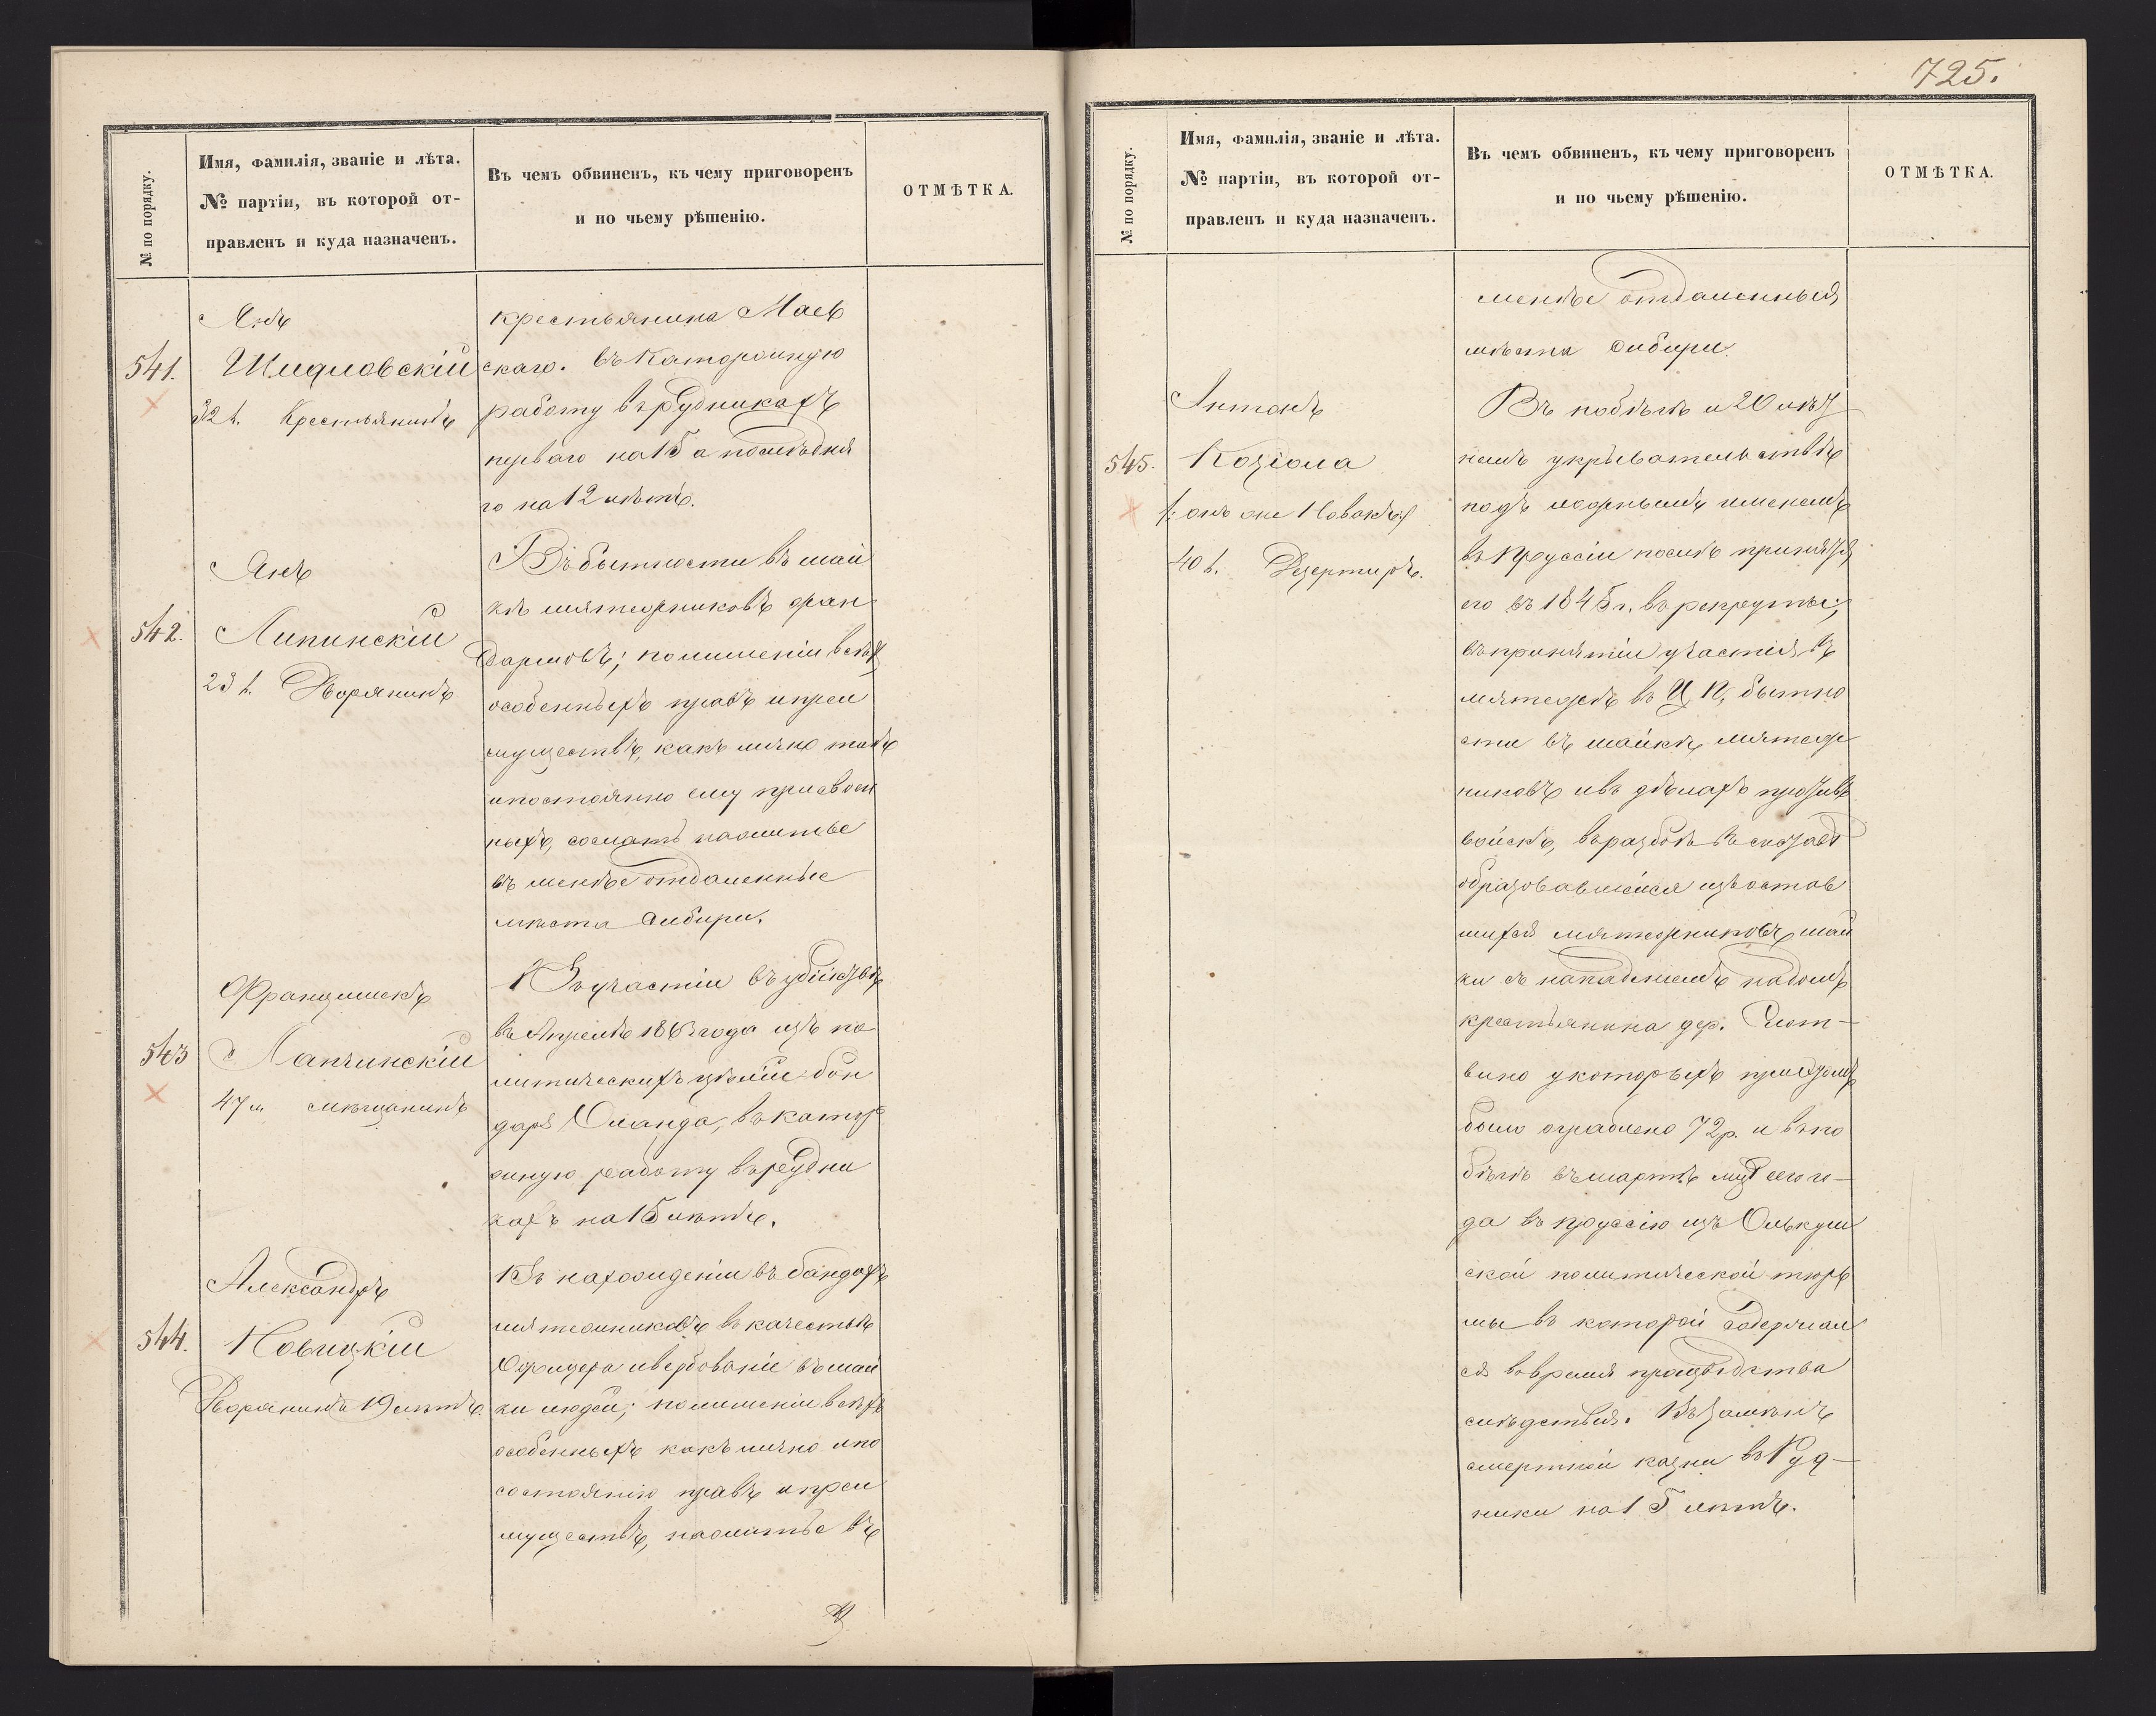 725.
№ по порядку.
Имя, фамилія, званіе и лѣта.
№ партіи, въ которой от-
правленъ и куда назначенъ.
Въ чемъ обвиненъ, къ чему приговоренъ
и по чьему рѣшенію.
ОТМѢТКА.
541.
Янъ
Шидловскій
32 л. Крестьянинъ
крестьянина Маев
скаго. въ Каторжную
работу въ рудникахъ
перваго на 15 а послѣдня
го на 12 лѣтъ.
542.
Янъ
Липинскій
23 л. Дворянинъ
Въ бытности въ шай
кѣ мятежниковъ жан
дармовъ; по лишеніи всѣхъ
особенныхъ правъ и преи
муществъ, какъ лично такъ
и по состоянію ему присвоен
ныхъ, сослать на житье
въ менѣе отдаленные
мѣста Сибири.
543
Францишекъ
Лапчинскій
47 л. мѣщанинъ
Въ участіи въ убійствѣ
въ Апрелѣ 1863 года изъ по
литическихъ цѣлей бон
даря Оланда, въ катор
жную работу въ рудни
кахъ на 15 лѣтъ.
544.
Александръ
Новицкій
Дворянинъ 19 лѣтъ.
Въ нахожденіи въ бандахъ
мятежниковъ въ качествѣ
Офицера и вербованіе въ шай
ки людей; по лишеніи всѣхъ
особенныхъ какъ лично и по
состоянію правъ и преи
муществъ, на житье въ
№ по порядку.
Имя, фамилія, званіе и лѣта.
№ партіи, въ которой от-
правленъ и куда назначенъ.
Въ чемъ обвиненъ, къ чему приговоренъ
и по чьему рѣшенію.
ОТМѢТКА.
менѣе отдаленныя
мѣста Сибири.
545.
Антонъ
Козіола
/: онъ же Новакъ :/
40 л. Дезертиръ.
Въ побѣгѣ и 20 лѣт
немъ укрывательствѣ
подъ ложнымъ именемъ
въ Пруссіи послѣ принятія
его въ 1845 г. въ рекруты;
въ принятіи участія въ
мятежѣ въ Ц. П., бытно
сти въ шайкѣ мятеж
никовъ и въ дѣлахъ противъ
войскъ, въ разбоѣ въ составѣ
образовавшейся изъ остав
шихся мятежниковъ шай
ки съ нападеніемъ на домъ
крестьянина дер. Слот-
вина у которыхъ при этомъ
было ограблено 72 р. и въ по
бѣгѣ въ мартѣ мѣс сего го-
да въ Пруссію изъ Олькуш
ской политической тюрь
мы въ которой содержал
ся во время производства
слѣдствія. Въ замѣнъ
смертной казни въ Руд-
ники на 15 лѣтъ.